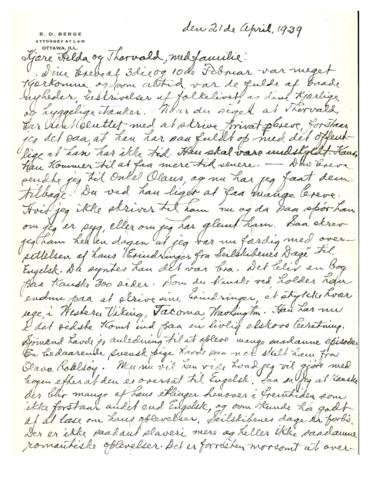 B. O. BERGE
ATTORNEY AT LAW
OTTAWA, ILL.
den 21 de April, 1939
Kjære Helda og Thorvald, med familie:
Dine Breve af 3die og 10de Februar var meget
kjærkomne og som altid var de fulde af baade
nyheder, beskrivelser af folkelivet og dine kjærlige
og hyggelige tanker. Naar du siger at Thorvald
har sluttet med at skrive Privat Breve, forstaar
jeg det saa, at han har saa fuldt op med det offent-
lige at han har ikke tid.
han kommer til at faa mere tid senere. — Dine Breve
sendte jeg til Onkel Olaus, og nu har jeg faaet dem
tilbage. Du ved han liger at faa mange Breve.
Hvis jeg ikke skriver til ham nu og da saa spör han
om jeg er syg, eller om jeg har glemt ham. Saa skrev
jeg ham her en dagen at jeg var nu færdig med over-
sættelsen af hans Erindringer fra Seilskibenes Dage til
Engelsk. Da syntes han det var bra. Det bliv en Bog
paa kanske 300 sider. Som du kanske ved holder han
endnu paa at skrive sine Erindringer, et stykke hver
uge, i Western Viking, Tacoma, Washington. Han har nu
i det sidste komt ind paa en livlig elskovs beretning.
Sjömænd havde jo anledning til at opleve mange saadanne episoder.
En bedaarende svensk pige havde saa nær stult ham fra
Olava Kobbsöy. Men nu vil han vide hvad jeg vil gjöre med
Bogen efter at den er oversat til Engelsk. Saa sier jeg at kanske
der blir mange af hans ætlinger henover i fremtiden som
ikke forstaar andet end Engelsk, og som kunde ha godt
af at læse om hans oplevelser. Seilskibenes dage er forbi.
Der er ikke saadant slaveri mere og heller ikke saadanne
romantiske oplevelser. Det er forresten morsomt at over-